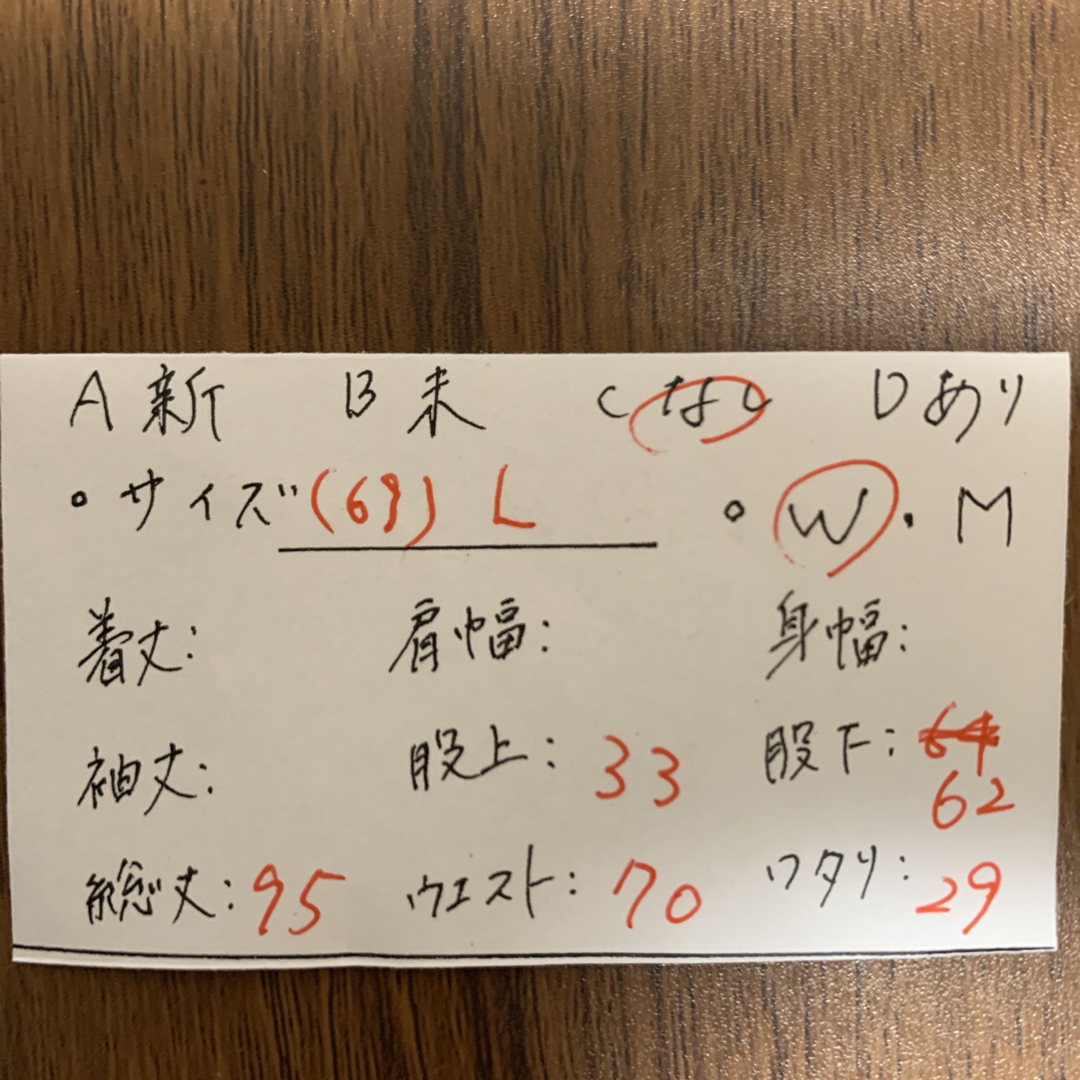 A 新 B 未 C なし D あり
• サイズ (69) L • W・M
着丈: 肩幅: 身幅:
袖丈: 股上: 33 股下: 64
62
総丈: 95 ウエスト: 70 ワタリ: 29